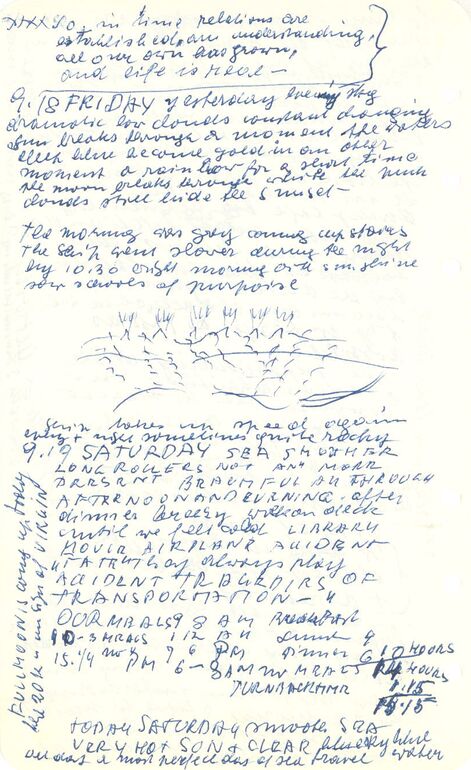 So, in time relations are
established, an understanding,
all our own has grown,
and life is real —
9.18 FRIDAY yesterday evening
dramatic low clouds constant changing
sun breaks through a moment the waters
become gold in an other
moment a rainbow for a short time
the moon breaks through while the pink
clouds still hide the sunset —
the morning was grey coming up stairs
the ship went slower during the night
by 10.30 bright morning with sunshine
saw schools of purpoise
ship takes up speed again
sometimes quite rocky
9.19 SATURDAY SEA SMOTHER
LONG ROLLERS NOT ANY MORE
PRESENT BEAUTIFUL ALTHROUGH
AFTERNOON AND EVENING. after
dinner breezy walk on deck
until we felt cold LIBRARY
MOVIE AIRPLANE ACIDENT
always play
ACIDENT TRAGEDIES OF
TRANSPORTATION — "
OUR MEALS 9 8 AM Breakfast
10 - 3 MEALS 1 12 AM Lunch 4
PM Dinner 6 10 HOURS
PM 6 – 8 AM NO MEALS 14 HOURS
1.15
15.15
TODAY SATURDAY smooth SEA
VERY HOT SON + CLEAR blue sky blue
most perfect day of sea travel water
FULL MOON IS coming up today
sign of VIRGIN